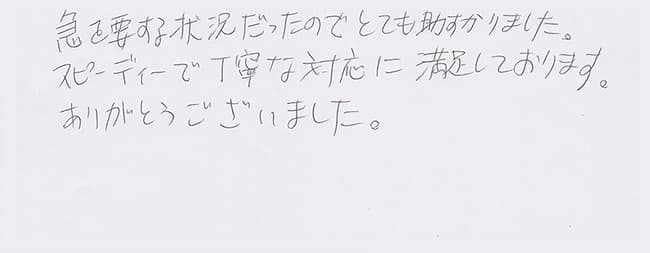 急を要する状況だったのでとても助すかりました。
スピーディーで丁寧な対応に満足しております。
ありがとうございました。